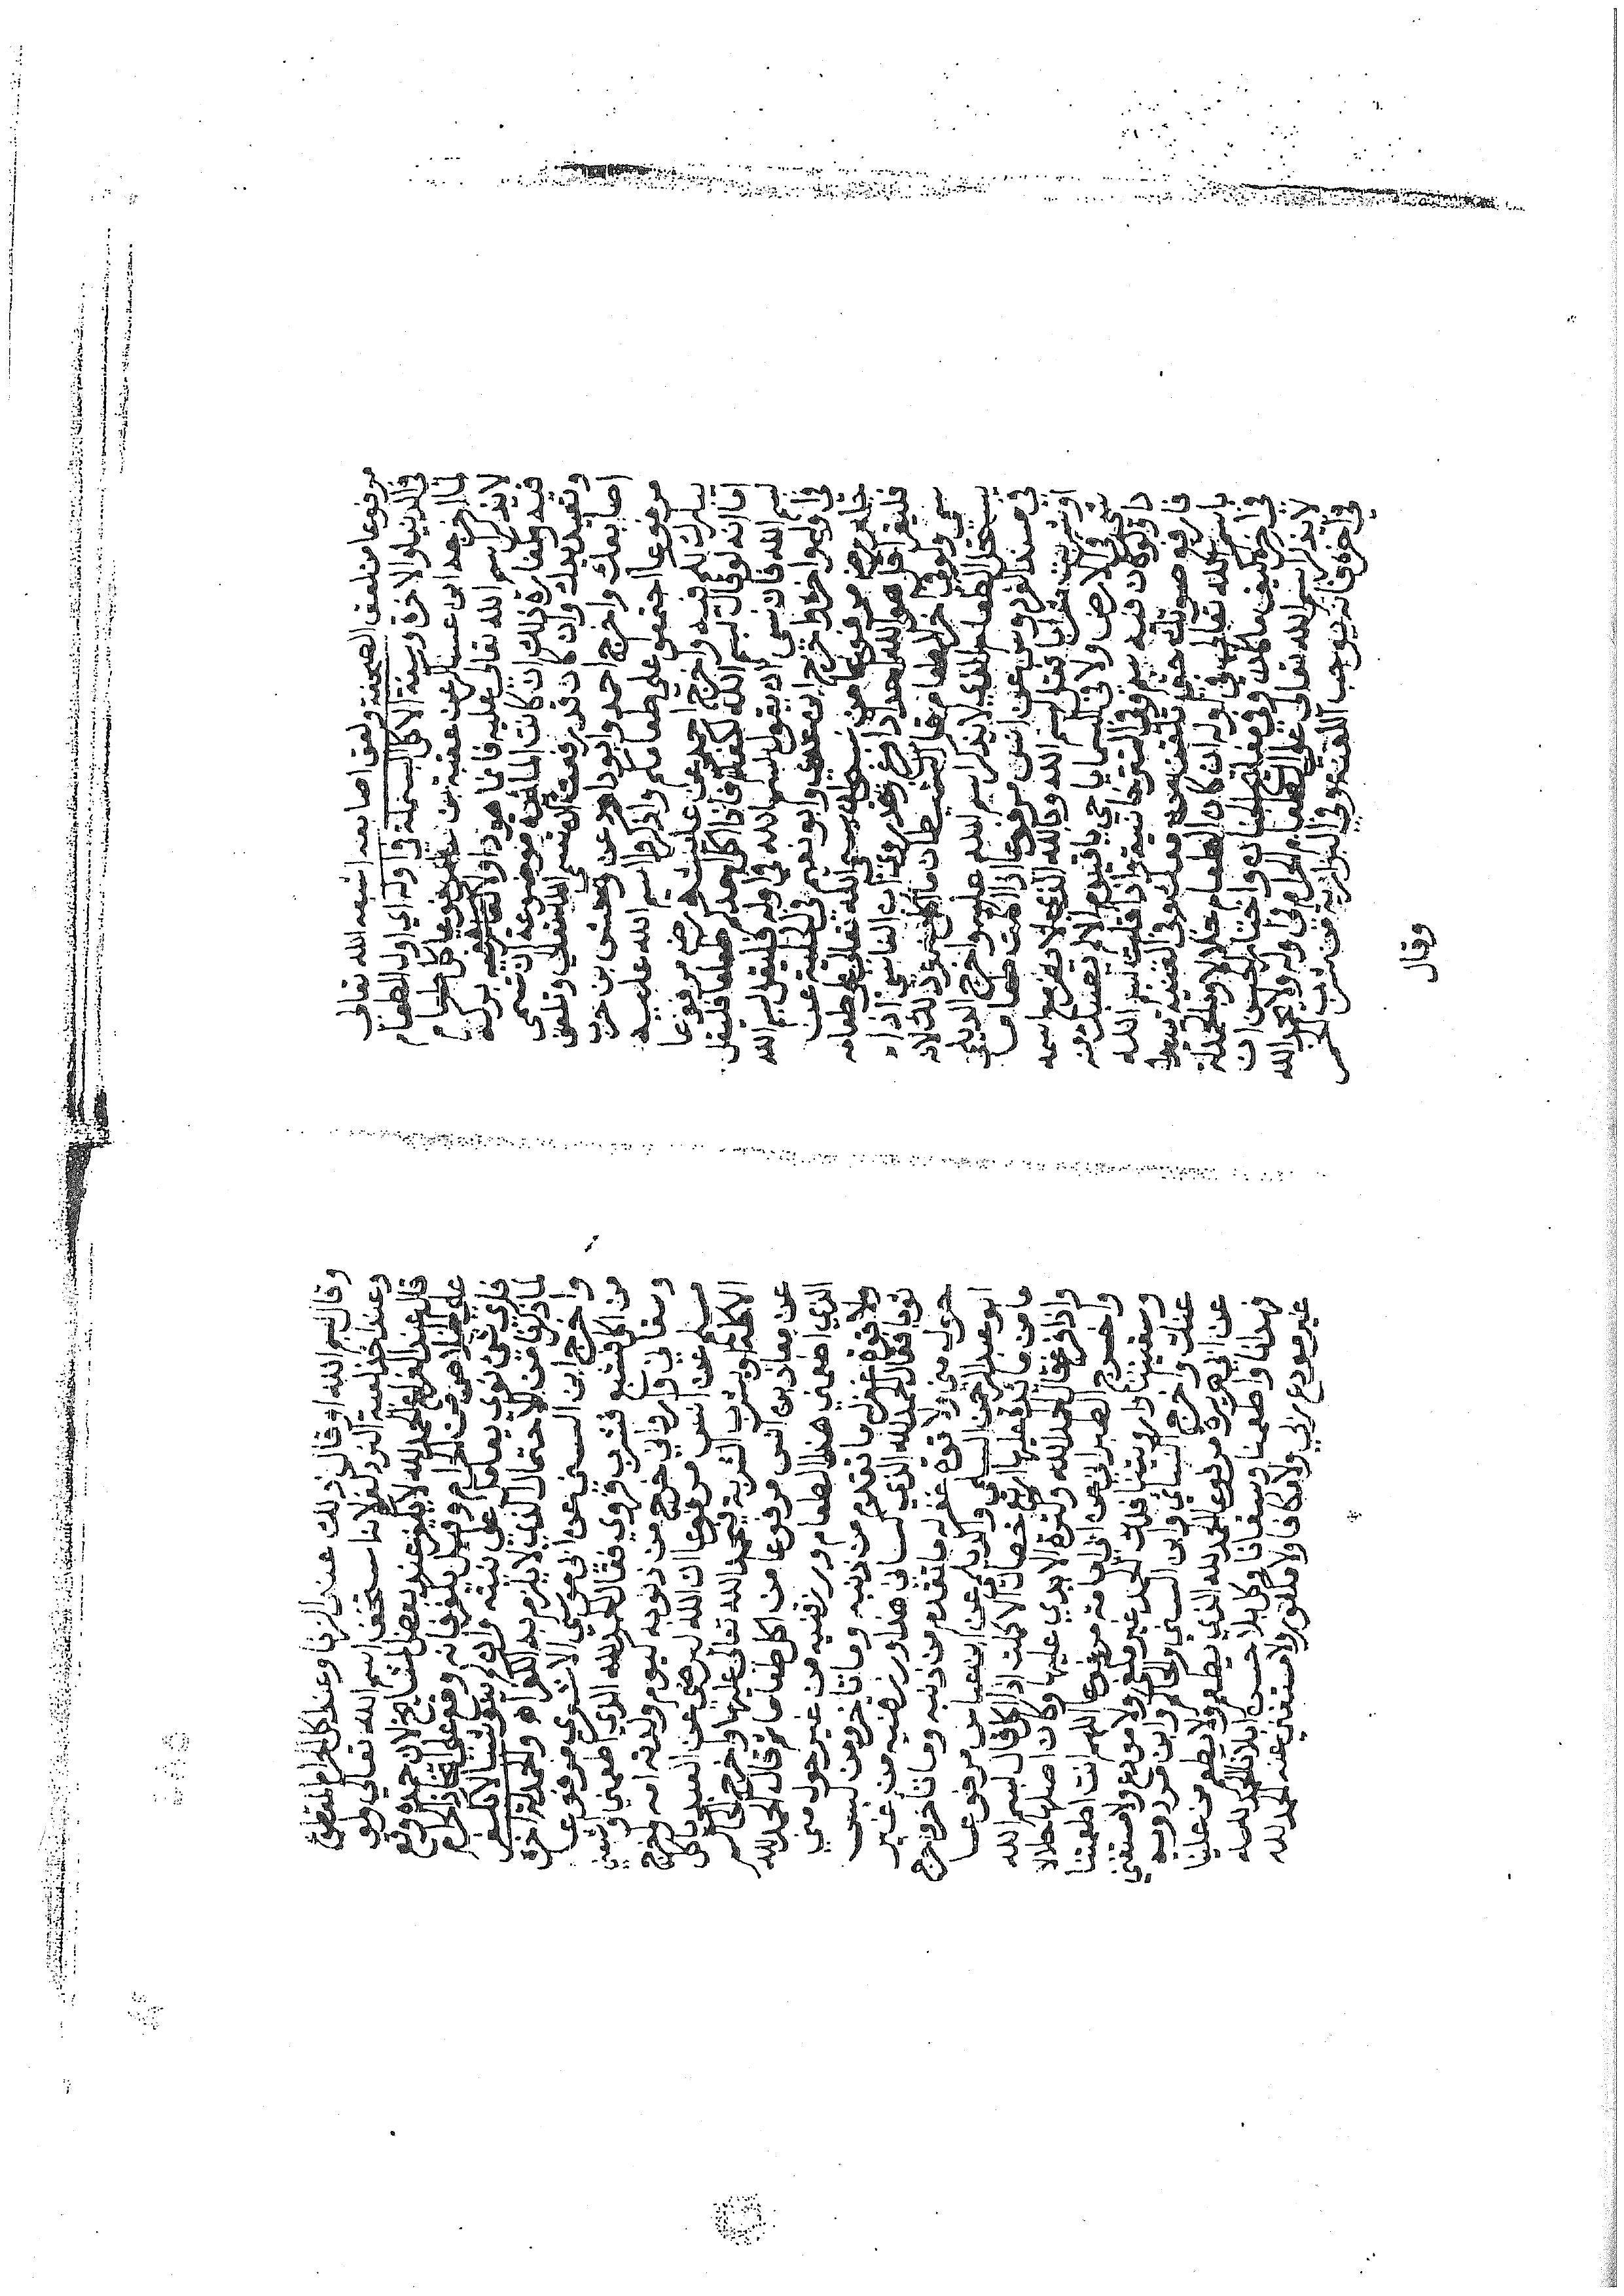 مرفوعا من لعق الصحفة ولعق اصابعه اشبعه الله تعالى
في الدنيا والاخرة وسنة الاكل البسملة في اوله اي اول الطعام
لما اخرجه ابن عساكر عن عقبة بن عامر مرفوعا كل طعام
لا يذكر اسم الله تعالى عليه فانما هو داء ولا بركة
فيه وكفارة ذلك ان كانت المائدة موضوعة ان تسمى
وتعيد يدك وان كان قد رفعت ان تسمى الله تعالى وتلعق
اصابعك واخرج احمد وابو داود عن وحشى بن حرب
مرفوعا اجتمعوا على طعامكم واذكروا اسم الله عليه
يبارك لكم فيه واخرج احمد عن عايشة رضه مرفوعا
اما انه لو قال بسم الله لكفاكم فاذا اكل احدكم طعاما فليقل
بسم الله فان نسى ان يقول بسم الله في اوله فليقل بسم الله
في اوله واخره واخرج ابن عدى وابو نعيم في الحلية عن
جابر رضه مرفوعا من نسى ان يسمى الله تعالى على طعامه
فليقرا قل هو الله احد اذا فرغ
سمى ولو في اخر الطعام قاء الشيطان ما اكل
يستحل الطعام الذي لا يذكر اسم الله عليه واخرج الديلمى
في مسند الفردوس عن انس مرفوعا اذا اكلت طعاما
او شربت شرابا فقل بسم الله وبالله الذي لا يضر مع اسمه
شئ في الارض ولا في السماء يا حي يا قيوم الا لم يصبك منه
داء ولو كان فيه سم وفي التترخانية واذا قلت بسم الله
فارفع صوتك حتى تلقن من معك
باسم الله تعالى في اوله ان كان الطعام حلالا وبالحمدلة
في اخره كيف ما كان
لا يذكر اسم الله تعالى على الطعام الحرام في اوله ولا يحمد الله
في اخره فانه يوجب اللعنة وفي البزازية من شرب الخمر
وقال
وقال بسم الله او قال ذلك عند الزنا وعند اكل الحرام المقطوع
وعند اخذ لعبة النرد كفر لانه استخف اسم الله تعالى ولو
قال عند الفراغ الحمد لله لا يكفر عند بعض المشايخ لان حمده وقع
على الخلاص من الحرام وقيل يكفر فانه وقع على اتخاذ الحرام
فان شئ نوى يعامل على نيته وان لم ينو شيئا لا يكفر
لما ذكرنا من الاحتمال الذي لا يلزم به الكفر اه والحمدلة اخره
واخرج ابن السنى عن ابى موسى الاشعرى مرفوعا
من اكل فشبع فشرب فروى فقال الحمد لله الذي اطعمني واشبعني
وسقاني وارواني خرج من ذنوبه كيوم ولدته امه واخرج
مسلم عن انس مرفوعا ان الله ليرضى عن العبد ياكل
الاكلة او يشرب الشربة فيحمد الله تعالى عليها واخرج الحاكم
عن معاذ بن انس مرفوعا من اكل طعاما ثم قال الحمد لله
الذي اطعمني هذا الطعام ورزقنيه من غير حول مني
ولا قوة غفر له ما تقدم من ذنبه وما تاخر ومن لبس
ثوبا فقال الحمد لله الذي كساني هذا ورزقنيه من غير
حول مني ولا قوة غفر له ما تقدم من ذنبه وما تاخر واخرج
ابو عبد الرحمن السلمى والديلمى عن ابن عباس مرفوعا
ما من مائدة عليها اربع خصال اذا اكل قال بسم الله
واذا فرغ قال الحمد لله وكثرة الايدي عليها وكان اصلها حلالا
واخرج الطبراني عن ابى امامة مرفوعا اللهم انت اطعمتنا
وسقيتنا وارويتنا فلك الحمد غير مكفى ولا مودع ولا مستغنى
عنك واخرج النسائي وابن السنى والحاكم وابن مردويه
عن ابى هريرة مرفوعا الحمد لله الذي يطعم ولا يطعم من علينا
فهدانا واطعمنا وسقانا وكل بلاء حسن ابلانا الحمد لله
غير مودع ربي ولا مكافا ولا مكفور ولا مستغنى عنه الحمد لله